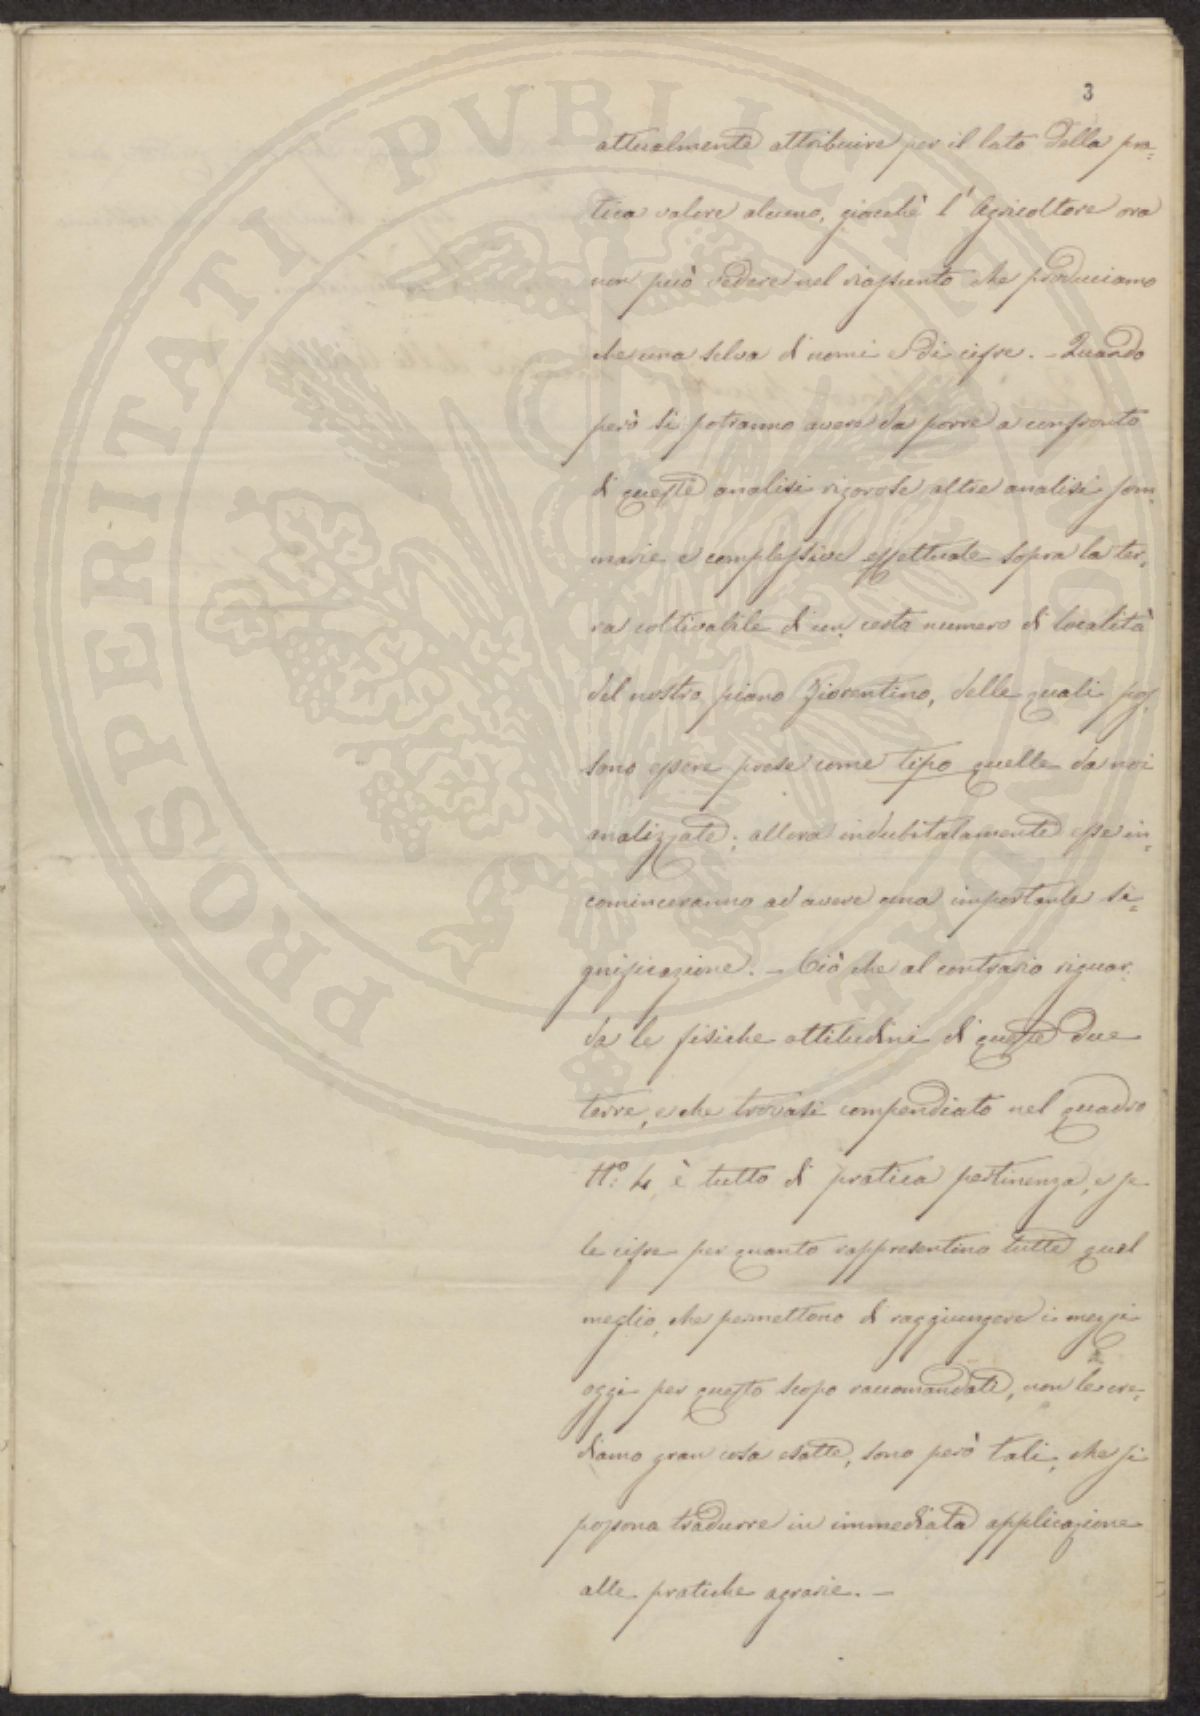 3
attualmente attribuire per il lato della pra=
tica valore alcuno, giacchè l'Agricoltore ora
non può vedere nel riassunto che produciamo
che una selva di nomi e di cifre. - Quando
però si potranno avere da porre a confronto
di queste analisi rigorose altre analisi som=
marie e complessive effettuate sopra la ter=
ra coltivabile di un certo numero di località
del nostro piano Fiorentino, delle quali pos
sono essere prese come tipo quelle da noi
analizzate; allora indubitatamente esse in=
cominceranno ad avere una importante si=
gnificazione. - Ciò che al contrario riguar=
da le fisiche attitudini di queste due
terre, e che trovasi compendiato nel quadro
N.° 4 è tutto di pratica pertinenza, e se
le cifre per quanto rappresentino tutto quel
meglio, che permettono di raggiungere i mezzi
oggi per questo scopo raccomandati, non le cre=
diamo gran cosa esatte, sono però tali, che si
possono tradurre in immediata applicazione
alle pratiche agrarie. -
PROSPERITATI PVBLICAE